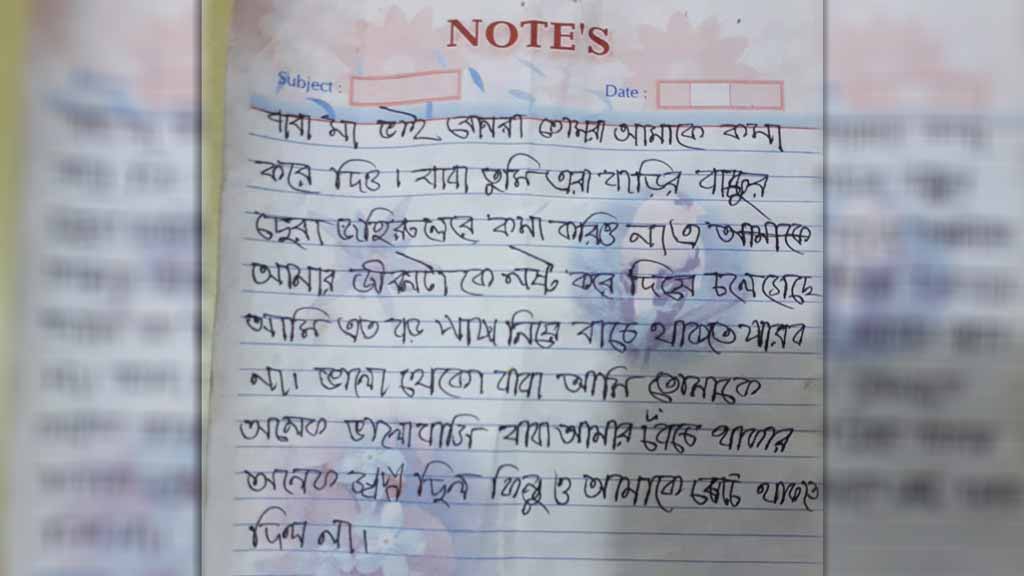 NOTE'S
Subject :
Date :
বাবা মা ভাই তোমরা আমাকে
করে দিও। বাবা তুমি এরা বাড়ির
করিও না ও আমাকে
আমার জীবনটা কে নষ্ট করে দিয়ে চলে গেছে
আমি এত বড় নিয়ে বাচে থাকতে পারব
না। ভালো থেকো বাবা আমি তোমাকে
অনেক ভালোবাসি বাবা আমার বেঁচে থাকার
অনেক ছিল কিন্তু ও আমাকে থাকতে
দিল না।